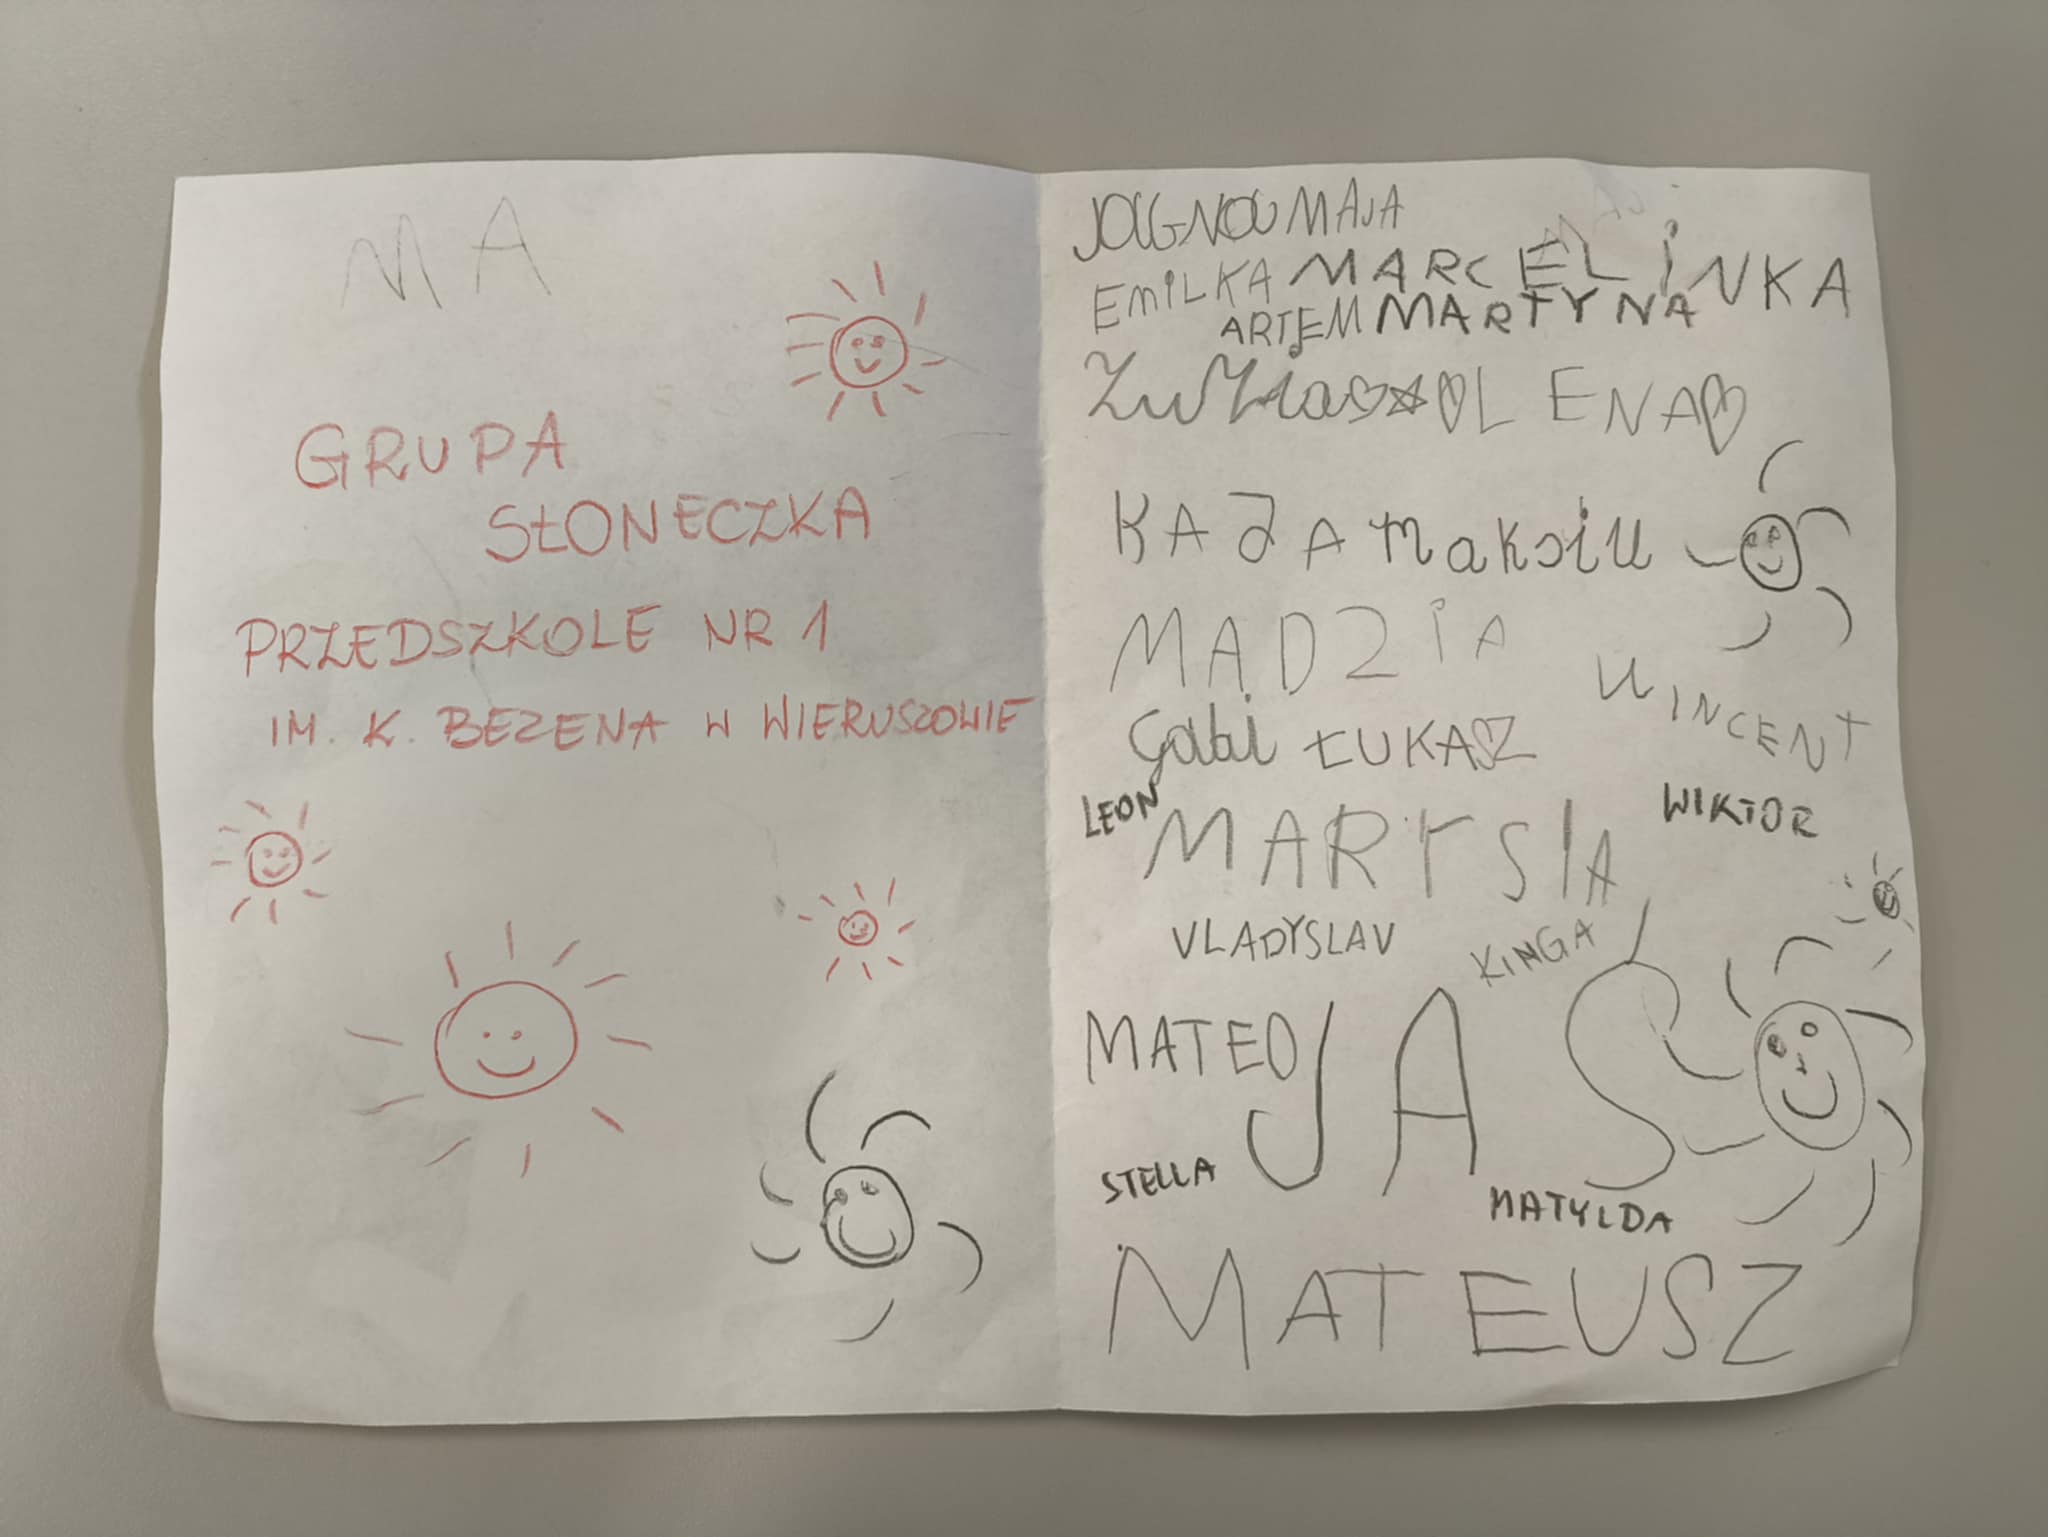 MA
GRUPA
SŁONECZKA
PRZEDSZKOLE NR 1
IM. K. BEZENA W WIERUSZOWIE
JAGNA MAJA
EMILKA MARCELINKA
ARTEM MARTYNA
Zuzia LENA
KAJA Maksiu
MADZIA
WINCENT
Gabi ŁUKASZ
LEON MARYSIA WIKTOR
VLADYSLAV KINGA
MATEO JAŚ
STELLA MATYLDA
MATEUSZ